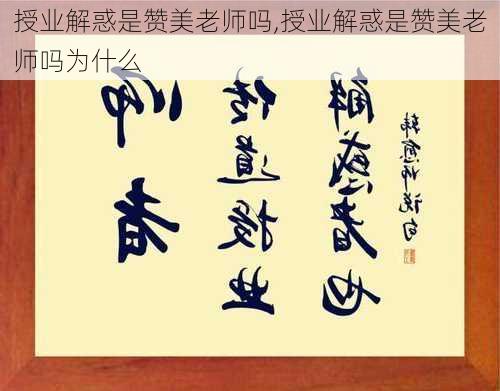 授业解惑是赞美老师吗,授业解惑是赞美老
师吗为什么
师者
传道授业
解惑者也
韩愈师说句